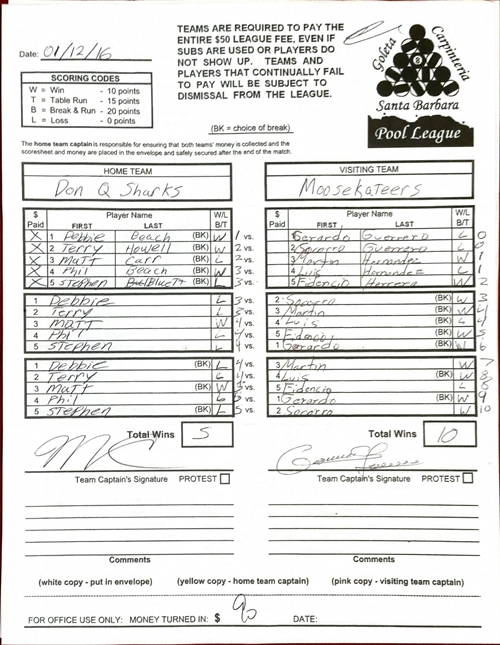 TEAMS ARE REQUIRED TO PAY THE
ENTIRE $50 LEAGUE FEE, EVEN IF
SUBS ARE USED OR PLAYERS DO
NOT SHOW UP. TEAMS AND
PLAYERS THAT CONTINUALLY FAIL
TO PAY WILL BE SUBJECT TO
DISMISSAL FROM THE LEAGUE.
Date: 01/12/16
SCORING CODES
W = Win - 10 points
T = Table Run - 15 points
B = Break & Run - 20 points
L = Loss - 0 points
(BK = choice of break)
Goleta Carpinteria
Santa Barbara
Pool League
The home team captain is responsible for ensuring that both teams' money is collected and the
scoresheet and money are placed in the envelope and safely secured after the end of the match.
HOME TEAM
Don Q Sharks
$ Paid Player Name W/L B/T
FIRST LAST
X 1 Debbie Beach (BK) W 1 vs.
X 2 Terry Howell (BK) W 2 vs.
X 3 Matt Carr (BK) L 2 vs.
X 4 Phil Beach (BK) W 3 vs.
X 5 Stephen Bluett (BK) L 3 vs.
1 Debbie L 3 vs.
2 Terry L 3 vs.
3 Matt W 4 vs.
4 Phil L 4 vs.
5 Stephen L 4 vs.
1 Debbie (BK) L 4 vs.
2 Terry L 4 vs.
3 Matt (BK) W 5 vs.
4 Phil L 5 vs.
5 Stephen (BK) L 5 vs.
Total Wins 5
Team Captain's Signature PROTEST
Comments
VISITING TEAM
Moosekateers
$ Paid Player Name W/L B/T
FIRST LAST
1 Gerardo Guerrero L 0
2 Socorro Guerrero L 0
3 Martin Hernandez W 1
4 Luis Hernandez L 1
5 Fidencio Herrera W 2
2 Socorro (BK) W 3
3 Martin (BK) W 4
4 Luis (BK) L 4
5 Fidencio (BK) W 5
1 Gerardo (BK) W 6
3 Martin W 7
4 Luis (BK) W 8
5 Fidencio L 8
1 Gerardo (BK) W 9
2 Socorro W 10
Total Wins 10
Team Captain's Signature PROTEST
Comments
(white copy - put in envelope) (yellow copy - home team captain) (pink copy - visiting team captain)
FOR OFFICE USE ONLY: MONEY TURNED IN: $ 90 DATE: